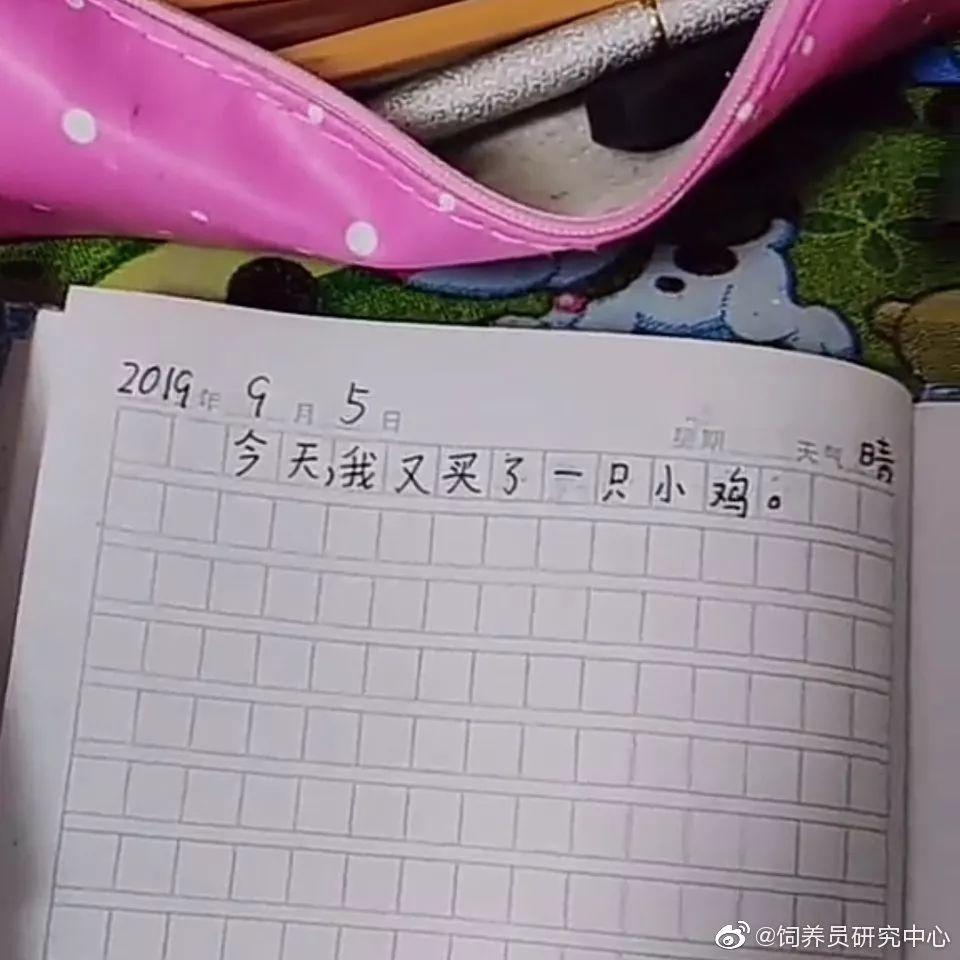 2019年 9月 5日 星期 天气 晴
今天,我又买了一只小鸡。
@饲养员研究中心